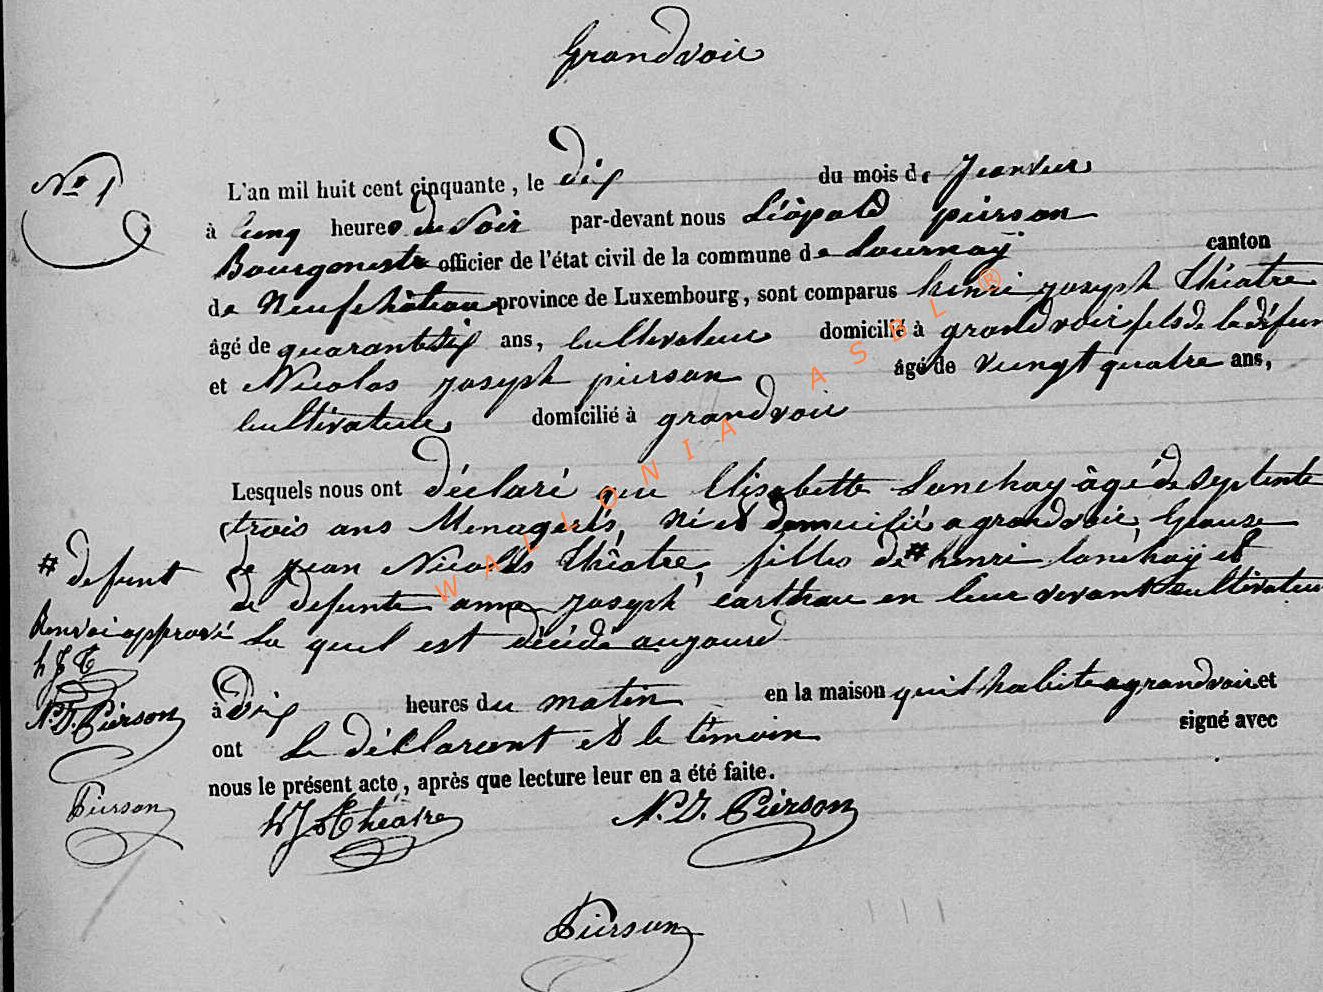 Grandvoir
N° 1
L'an mil huit cent cinquante, le dix du mois de Janvier
à cinq heures du Soir par-devant nous Léopold pierson
Bourgmestre officier de l'état civil de la commune de tournay canton
de Neufchâteau province de Luxembourg, sont comparus henri joseph théatre
âgé de quarante six ans, cultivateur domicilié à grandvoir fils de la défun
et Nicolas joseph pierson âgé de vingt quatre ans,
cultivateur domicilié à grandvoir
Lesquels nous ont déclaré que Elisabette Lanchay âgé de septente
trois ans Menagerés, Né et domicilié a grandvoir, Epause
de jean Nicolas théatre, filles de # henri lanchaÿ et
de defunte anne joseph en leur vivant cultivateur
La quel est décidé aujourd
à dix heures du matin en la maison quil habite a grandvoir et
ont Le déClarant et le témoin signé avec
nous le présent acte, après que lecture leur en a été faite.
# defunt
Renvoi approuvé
h J T
N. J. Pierson
Pierson
h J Théatre N. J. Pierson
Pierson
WALLONIA ASBL ®